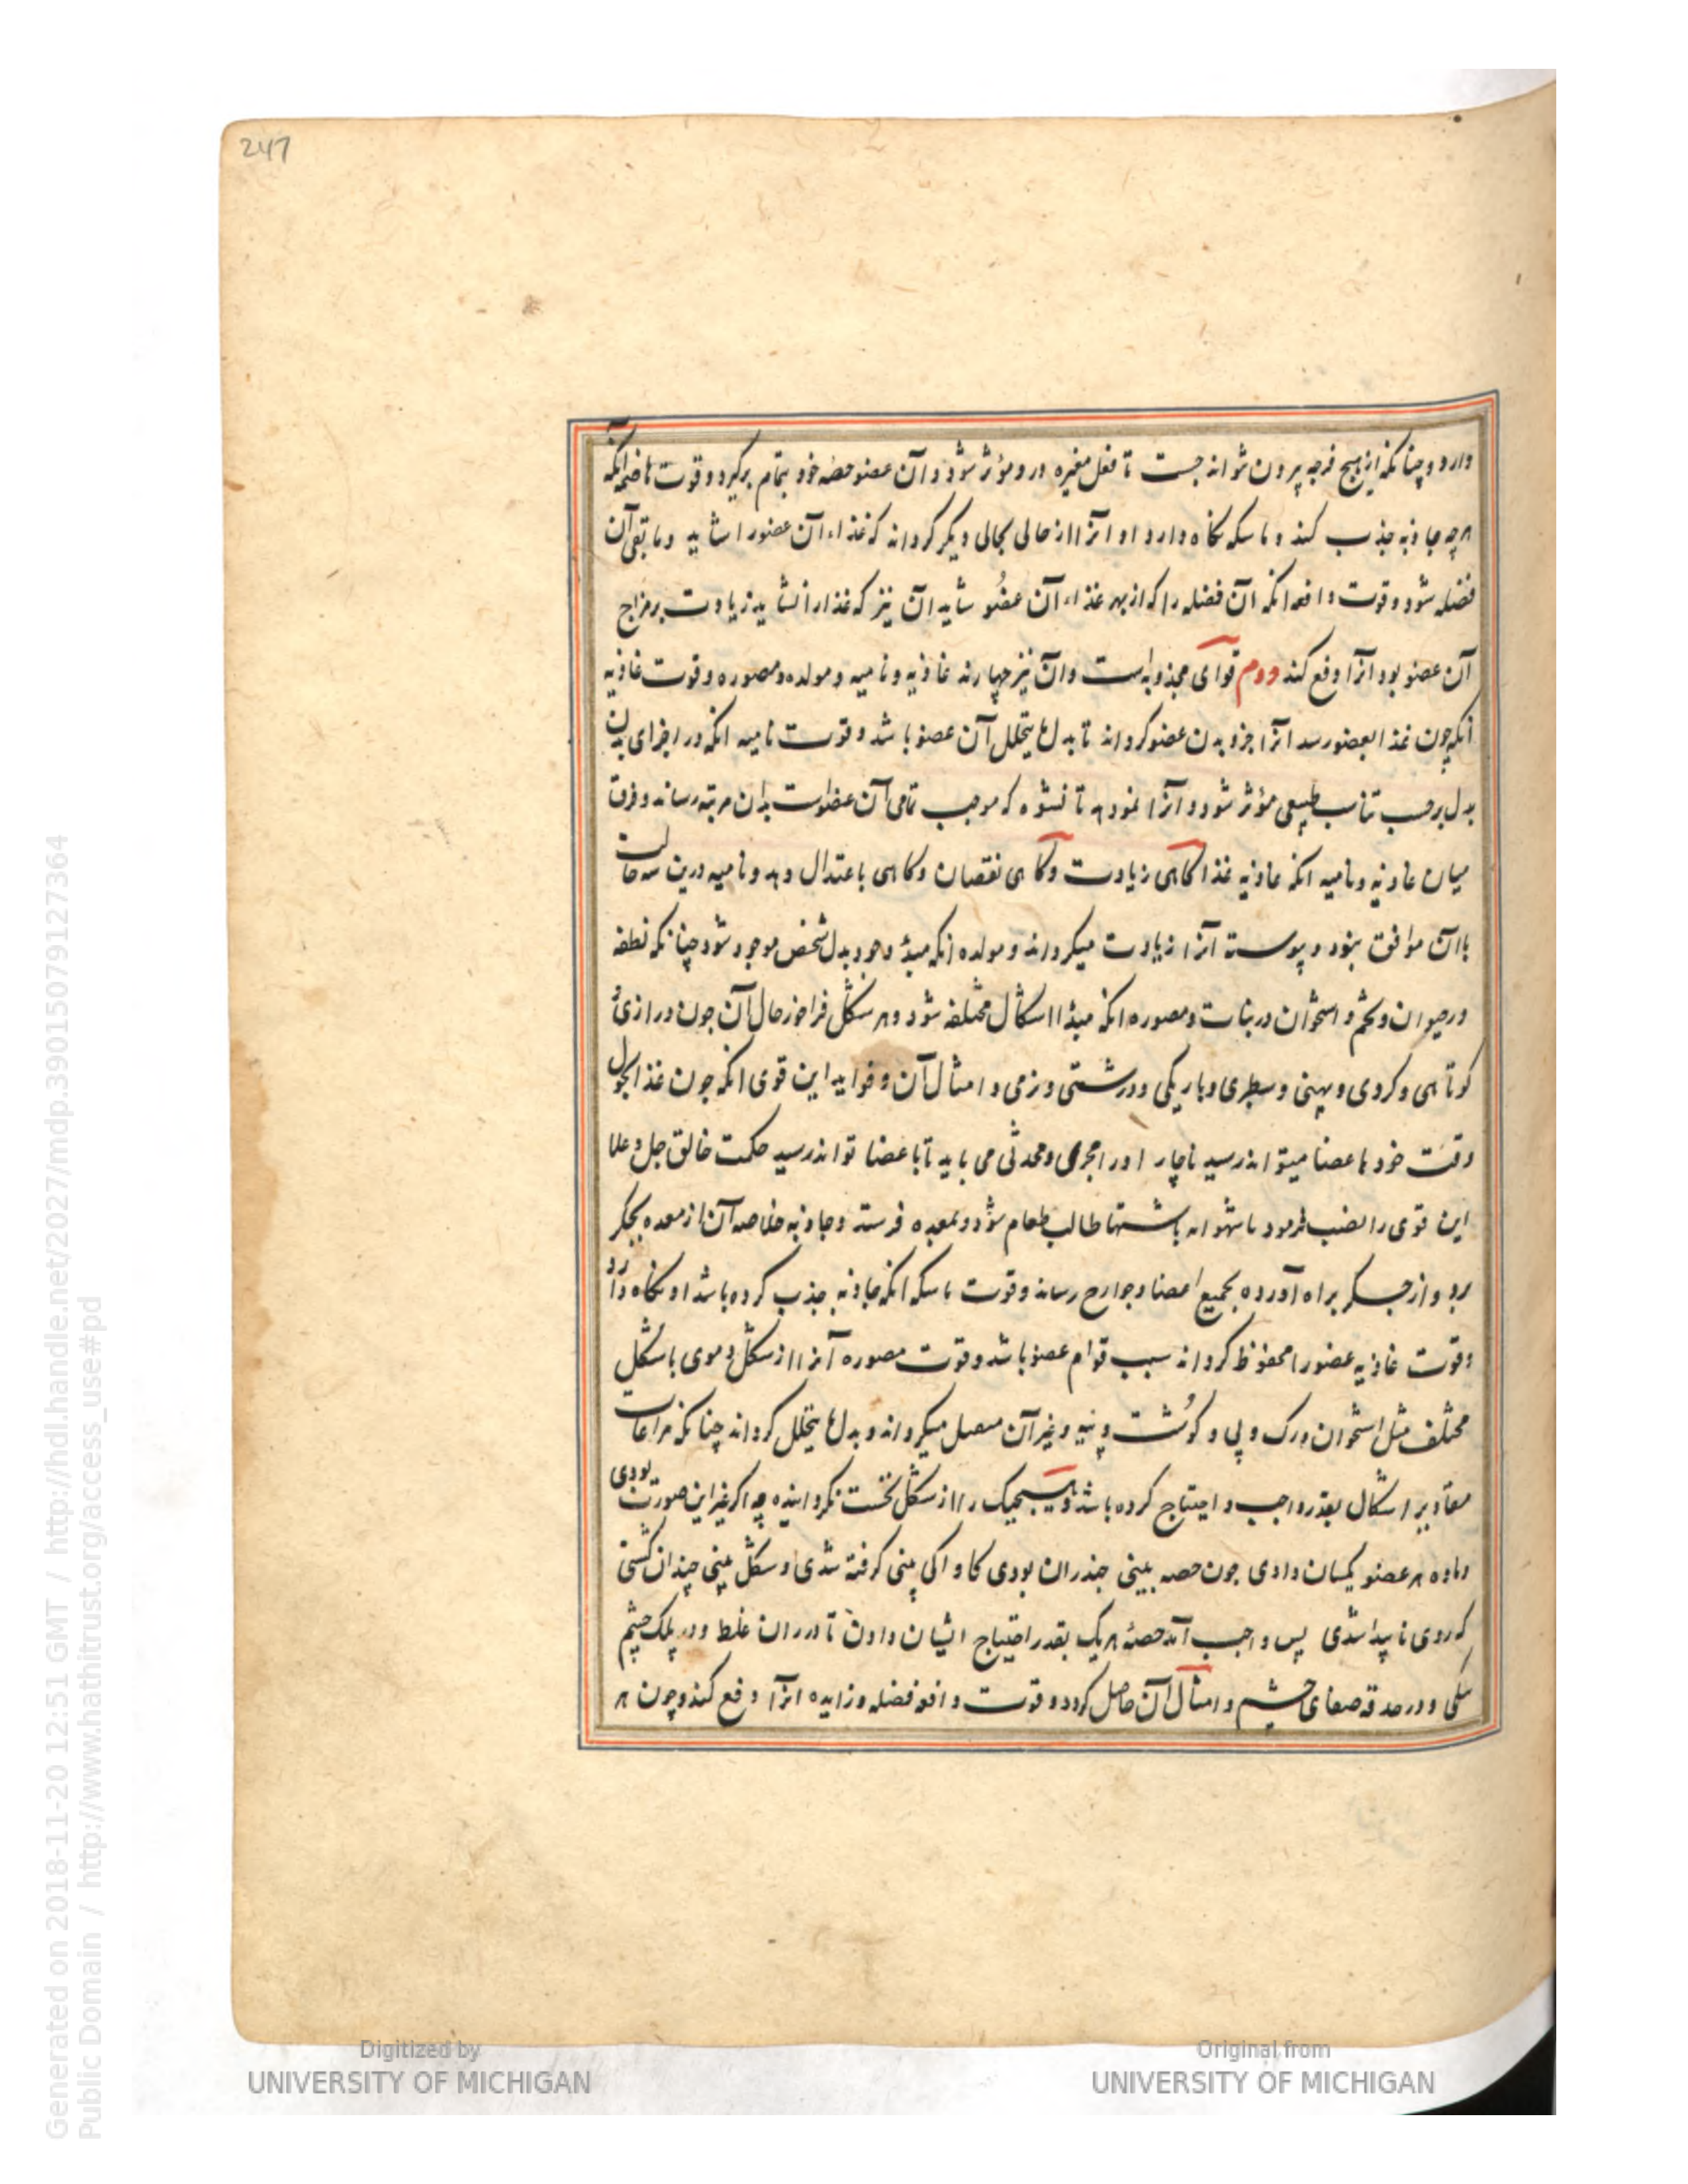 247
دارد و چنانکه از هیچ فرجه بیرون نتواند جست تا فعل مغیره درو مؤثر شود و آن عضو حصه خود بتمام برگیرد و قوت هاضمه آنکه
هرچه جاذبه جذب کند و ماسکه نگاه دارد او آنرا از حالی بحالی دیگر گرداند که غذاء آن عضو را شاید و مابقی آن
فضله شود و قوت دافعه آنکه آن فضله را که از بهر غذاء آن عضو شاید آن نیز که غذا را نشاید زیادت بر مزاج
آن عضو بود آنرا دفع کند دوم قوای مخدومه است و آن نیز چهارند غاذیه و نامیه و مولده و مصوره و قوت غاذیه
آنکه چون غذا بعضو رسد آنرا جزو بدن عضو گرداند تا بدل ما یتحلل آن عضو باشد و قوت نامیه آنکه در اجزای بدن
بدل برحسب تناسب طبیعی مؤثر شود و آنرا نمو دهد تا نشوه که موجب تمامی آن عضوست بدان مرتبه رساند و فرق
میان غاذیه و نامیه آنکه غاذیه غذا گاهی زیادت و گاهی نقصان و گاهی باعتدال دهد و نامیه درین سه حالت
با آن موافق بود و پیوسته آنرا زیادت میگرداند و مولده آنکه مبدٔ وجود بدل شخص موجود شود چنانکه نطفه
در حیوان و تخم و استخوان در نبات و مصوره آنکه مبدٔا اشکال مختلفه شود و هر شکل فراخور حال آن چون درازی و
کوتاهی و گردی و پهنی و سطبری و باریکی و درشتی و نرمی و امثال آن و فواید این قوی آنکه چون غذا بحول
وقت خود باعضا میتواند رسید ناچار او را مجری و محدثی می باید تا باعضا تواند رسید حکمت خالق جل و علا
این قوی را نصب فرمود تا شهوانه باشتها طالب طعام شود و بمعده فرستد و جاذبه خلاصه آن از معده بجگر
برد و از جگر براه آورده بجمیع اعضا و جوارح رساند و قوت ماسکه آنکه جاذبه جذب کرده باشد او نگاه دارد
و قوت غاذیه عضو را محفوظ گرداند سبب قوام عضو باشد و قوت مصوره آنرا از شکل دموی باشکال
مختلف مثل استخوان و رگ و پی و گوشت و پیه و غیر آن متصل میگرداند و بدل ما یتحلل گرداند چنانکه مراعات
مقادیر اشکال بقدر واجب و احتیاج کرده باشد و هیچیک را از شکل نخست نگرداینده چه اگر غیر این صورت بودی
و ماده هر عضو یکسان دادی چون حصه بینی چندران بودی کاواکی بینی گرفته شدی و شکل بینی چندان گشتی
که روی ناپیدا شدی پس واجب آمد حصهٔ هر یک بقدر احتیاج ایشان دادن تا در ران غلظ و در پلک چشم
تنکی و در حدقه صفای چشم و امثال آن حاصل گردد و قوت دافعه فضله و زایده آنرا دفع کند و چون هر
Generated on 2018-11-20 12:51 GMT / http://hdl.handle.net/2027/mdp.39015079127364
Public Domain / http://www.hathitrust.org/access_use#pd
Digitized by
UNIVERSITY OF MICHIGAN
Original from
UNIVERSITY OF MICHIGAN